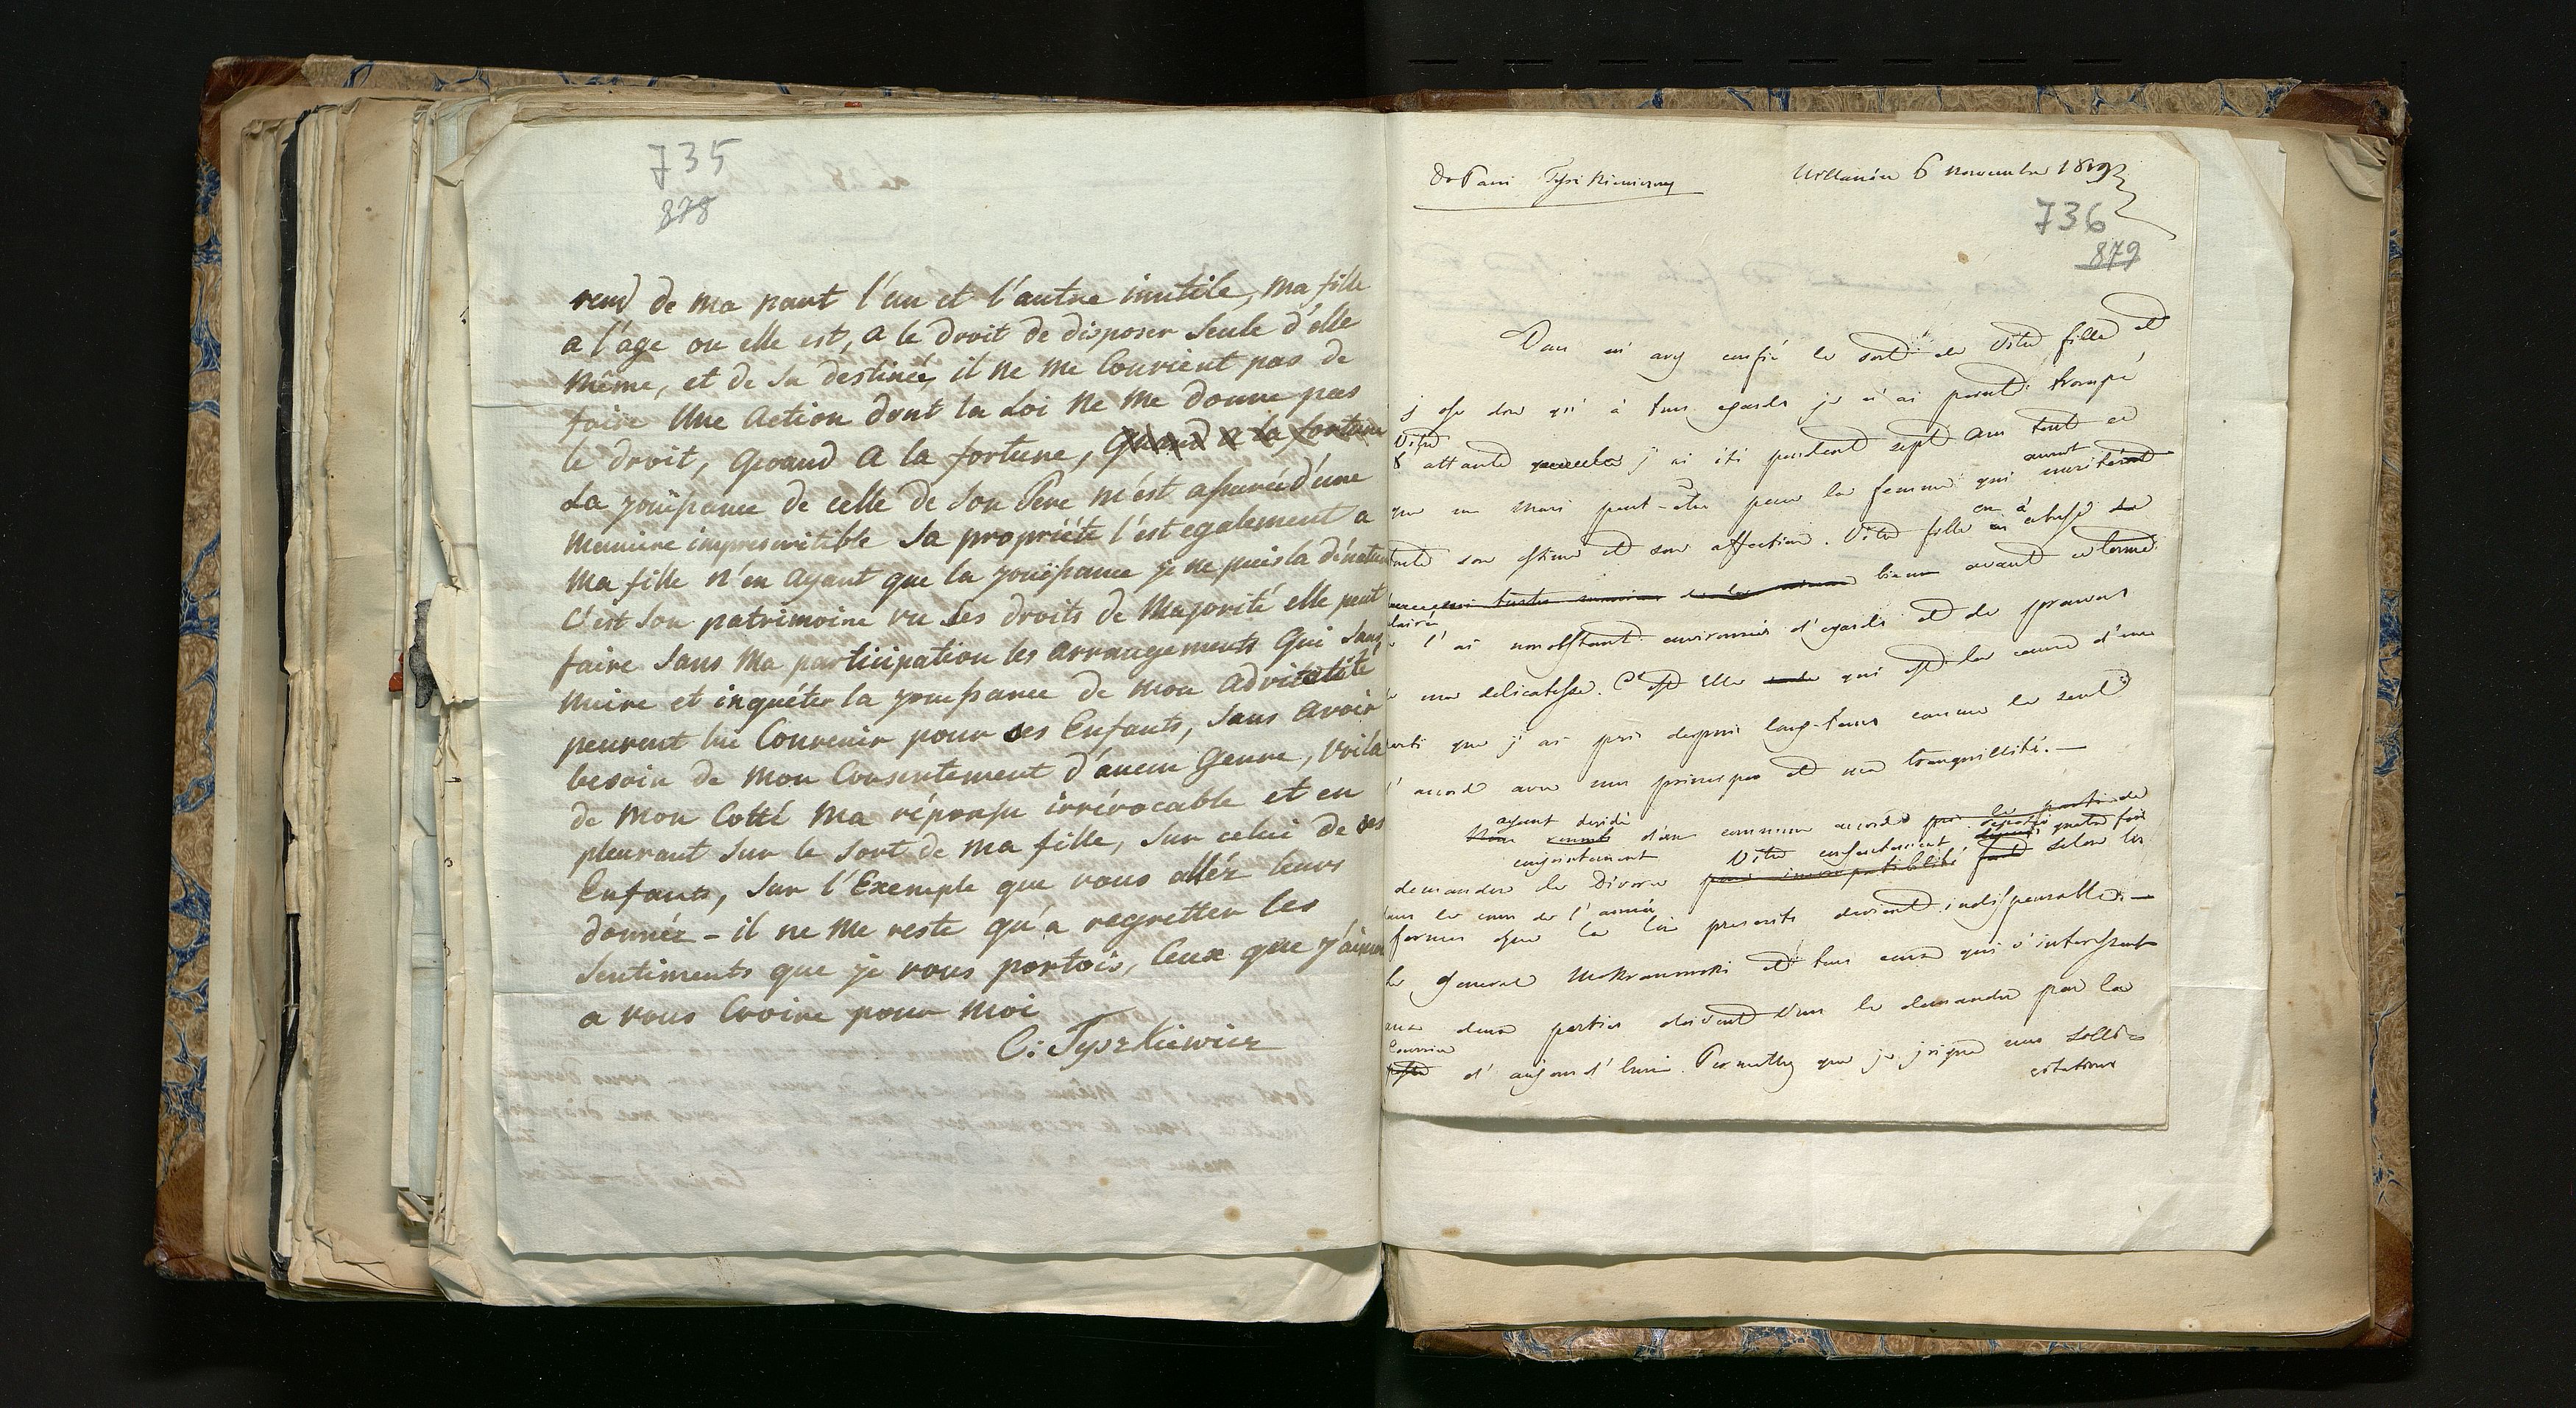 735
878
rend de ma part l'un et l'autre inutile, Ma fille
a l'âge ou elle est, a le droit de disposer Seule d'elle
Même, et de Sa destinée, il ne me Convient pas de
faire Une Action dont la Loi Ne Me donne pas
le droit, Quand A la fortune, Quand a la fortune
La jouissance de celle de Son Pere m'est assurée d'une
Maniere imprescritible Sa propriéte l'est egalement a
Ma fille N'en Ayant que la jouissance je ne puis la dénaturer
C'est Son patrimoine vu Ses droits de Majorité elle peut
faire Sans Ma participation les arrangements Qui Sans
Nuire et inquéter la jouissance de Mon Advitalité
peuvent lui Convenir pour Ses Enfants, Sans avoir
besoin de Mon Consentement d'aucun Genre, Voila
de Mon Cotté Ma réponse irrévocable et en
pleurant Sur le Sort de Ma fille, Sur celui de Ses
Enfants, Sur l'Exemple que vous alléz leurs
donnéz - il ne Me reste qu'a regretter les
Sentiments que je vous portois, Ceux que j'aimois
a vous Croire pour Moi
C: Tyszkiewicz
do Pani Tyszkiewiczowy
Willanów 6 novembre
736
879
Vous m'avez confié le sort de Votre fille et
j'ose dire qu'à tous egards je n'ai point trompé
Votre
attente j'ai été pendant sept ans tout ce
auront
que un mari peut-être pour la femme qui méritent
en a
toute son estime et son affection. Votre fille abusé
bien avant ce terme
l'ai nonobstant environnée d'egards et de preuves
de ma delicatesse. C'est Elle qui est la cause d'un
parti que j'ai pris depuis long-tems comme le seul
d'accord avec mes principes et ma tranquillité. —
ayant decidé
d'un commun accord pris le parti de
conjointement Votre consentement quatre fois
demander le Divorce pour incompatibilité selon les
dans le cours de l'année
formes que la loi prescrit devient indispensable. —
Le General Mokronowski et tous ceux qui s'interessent
aux deux parties doivent Vous le demander par le
Courrier
poste d'aujourd'hui. Permettez que je joigne mes solli=
citations